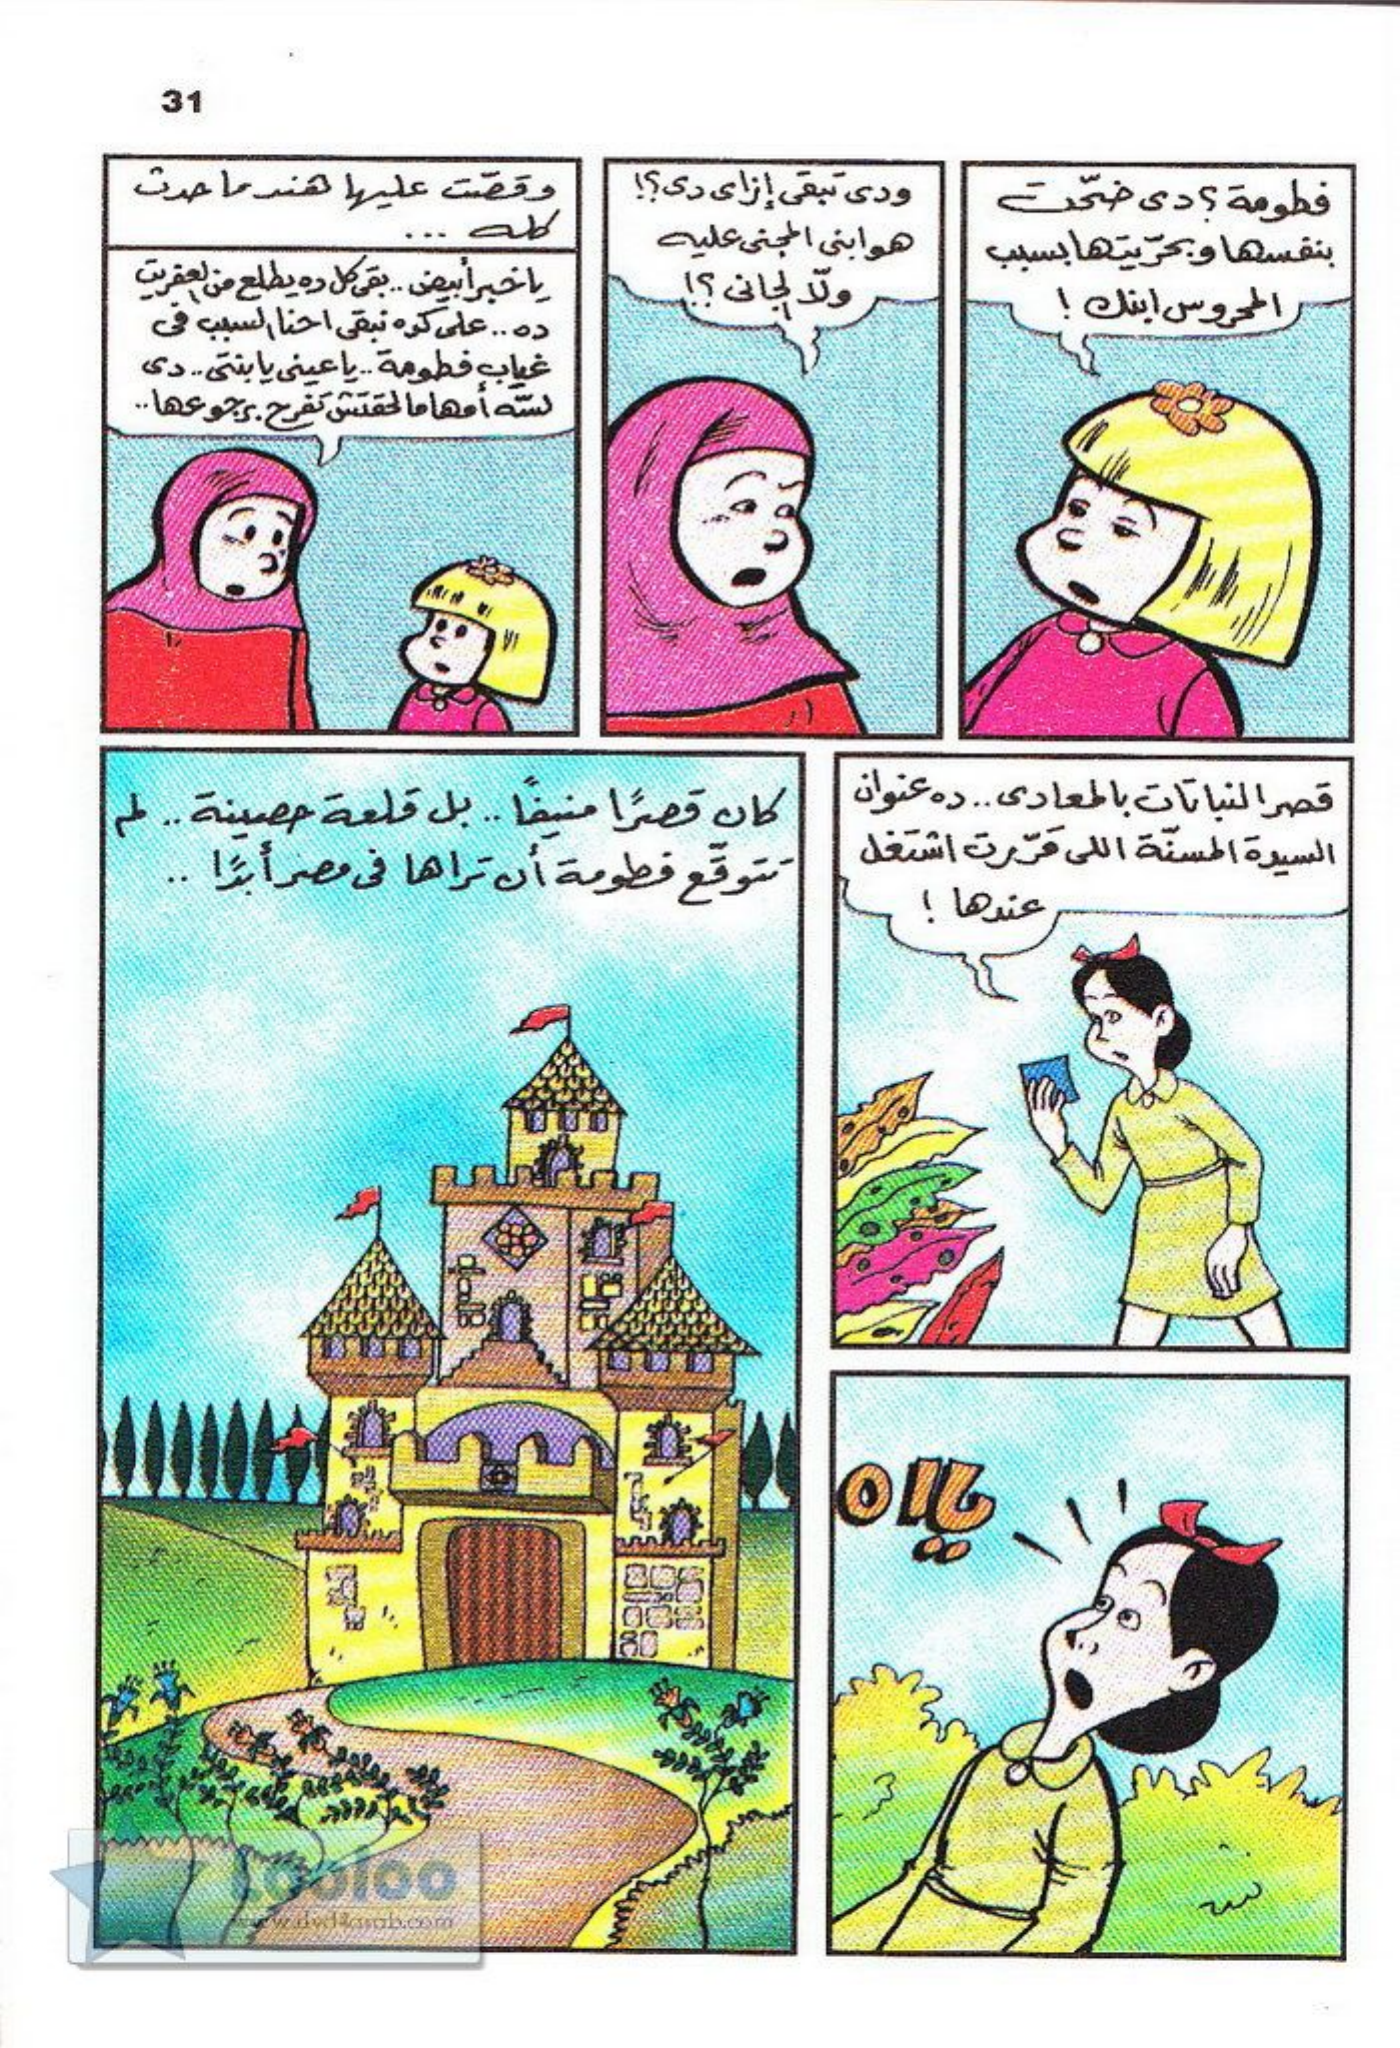 31
فطومة؟ دى ضحّت
بنفسها وبحرّيتها بسبب
المحروس ابنك!
ودى تبقى إزاى دى؟!
هو ابنى المجنى عليه
ولّا الجانى؟!
وقصّت عليها هند ما حدث
كله ...
يا خبر أبيض.. بقى كل ده يطلع من العفريت
ده.. على كده نبقى احنا السبب فى
غياب فطومة.. يا عينى يا بنتى.. دى
لسّه أمها مالحقتش تفرح برجوعها..
قصر النباتات بالمعادى.. ده عنوان
السيدة المسنّة اللى قرّرت اشتغل
عندها!
كان قصرًا منيفًا.. بل قلعة حصينة.. لم
تتوقّع فطومة أن تراها فى مصر أبدًا ..
ياااه
Looloo
www.dvd4arab.com